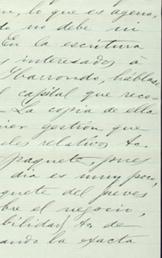 lo que es ageno,
no debe ni
En la escritura
interesados á
hablase
capital que reco
La copia de ella
gestion, que
relativos
paquete, pues
dia es muy po
quete del jueves
bre el negocio,
bilidad
ando la exacta